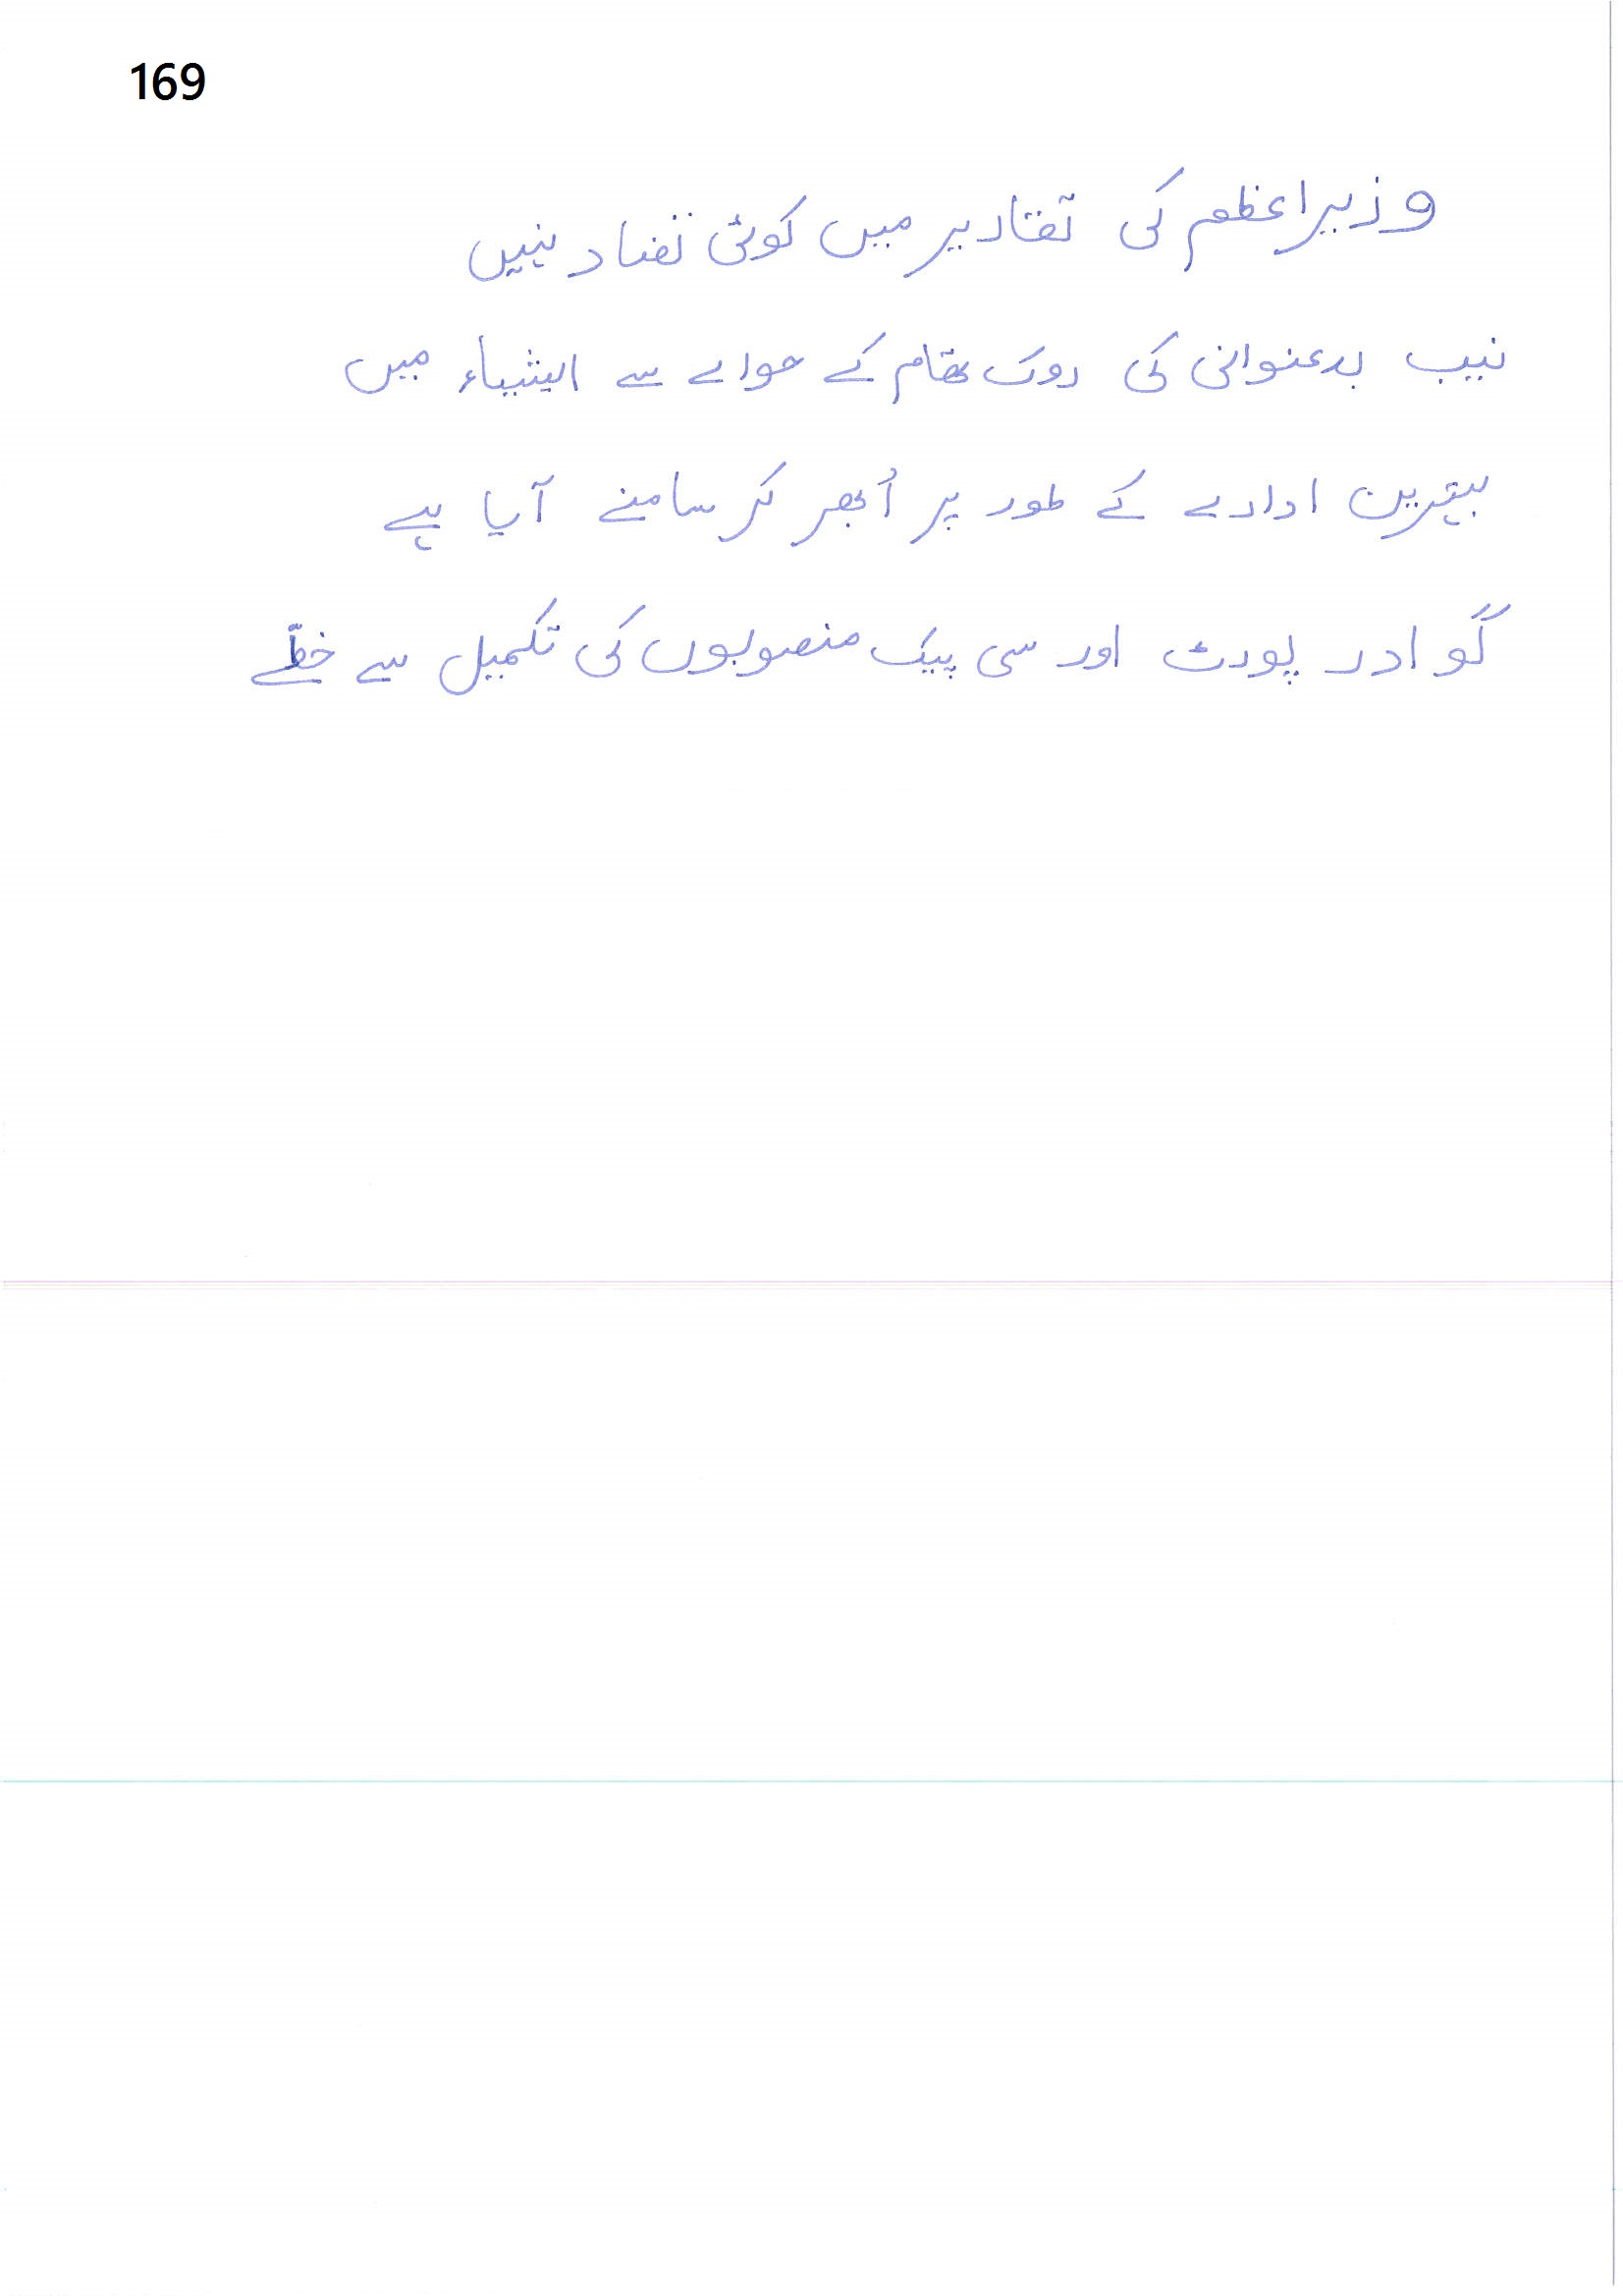 169
وزیراعظم کی تقاریر میں کوئی تضاد نہیں
نیب بدعنوانی کی روک تھام کے حوالے سے ایشیاء میں
بہترین ادارے کے طور پر اُبھر کر سامنے آیا ہے
گوادر پورٹ اور سی پیک منصوبوں کی تکمیل سے خطّے